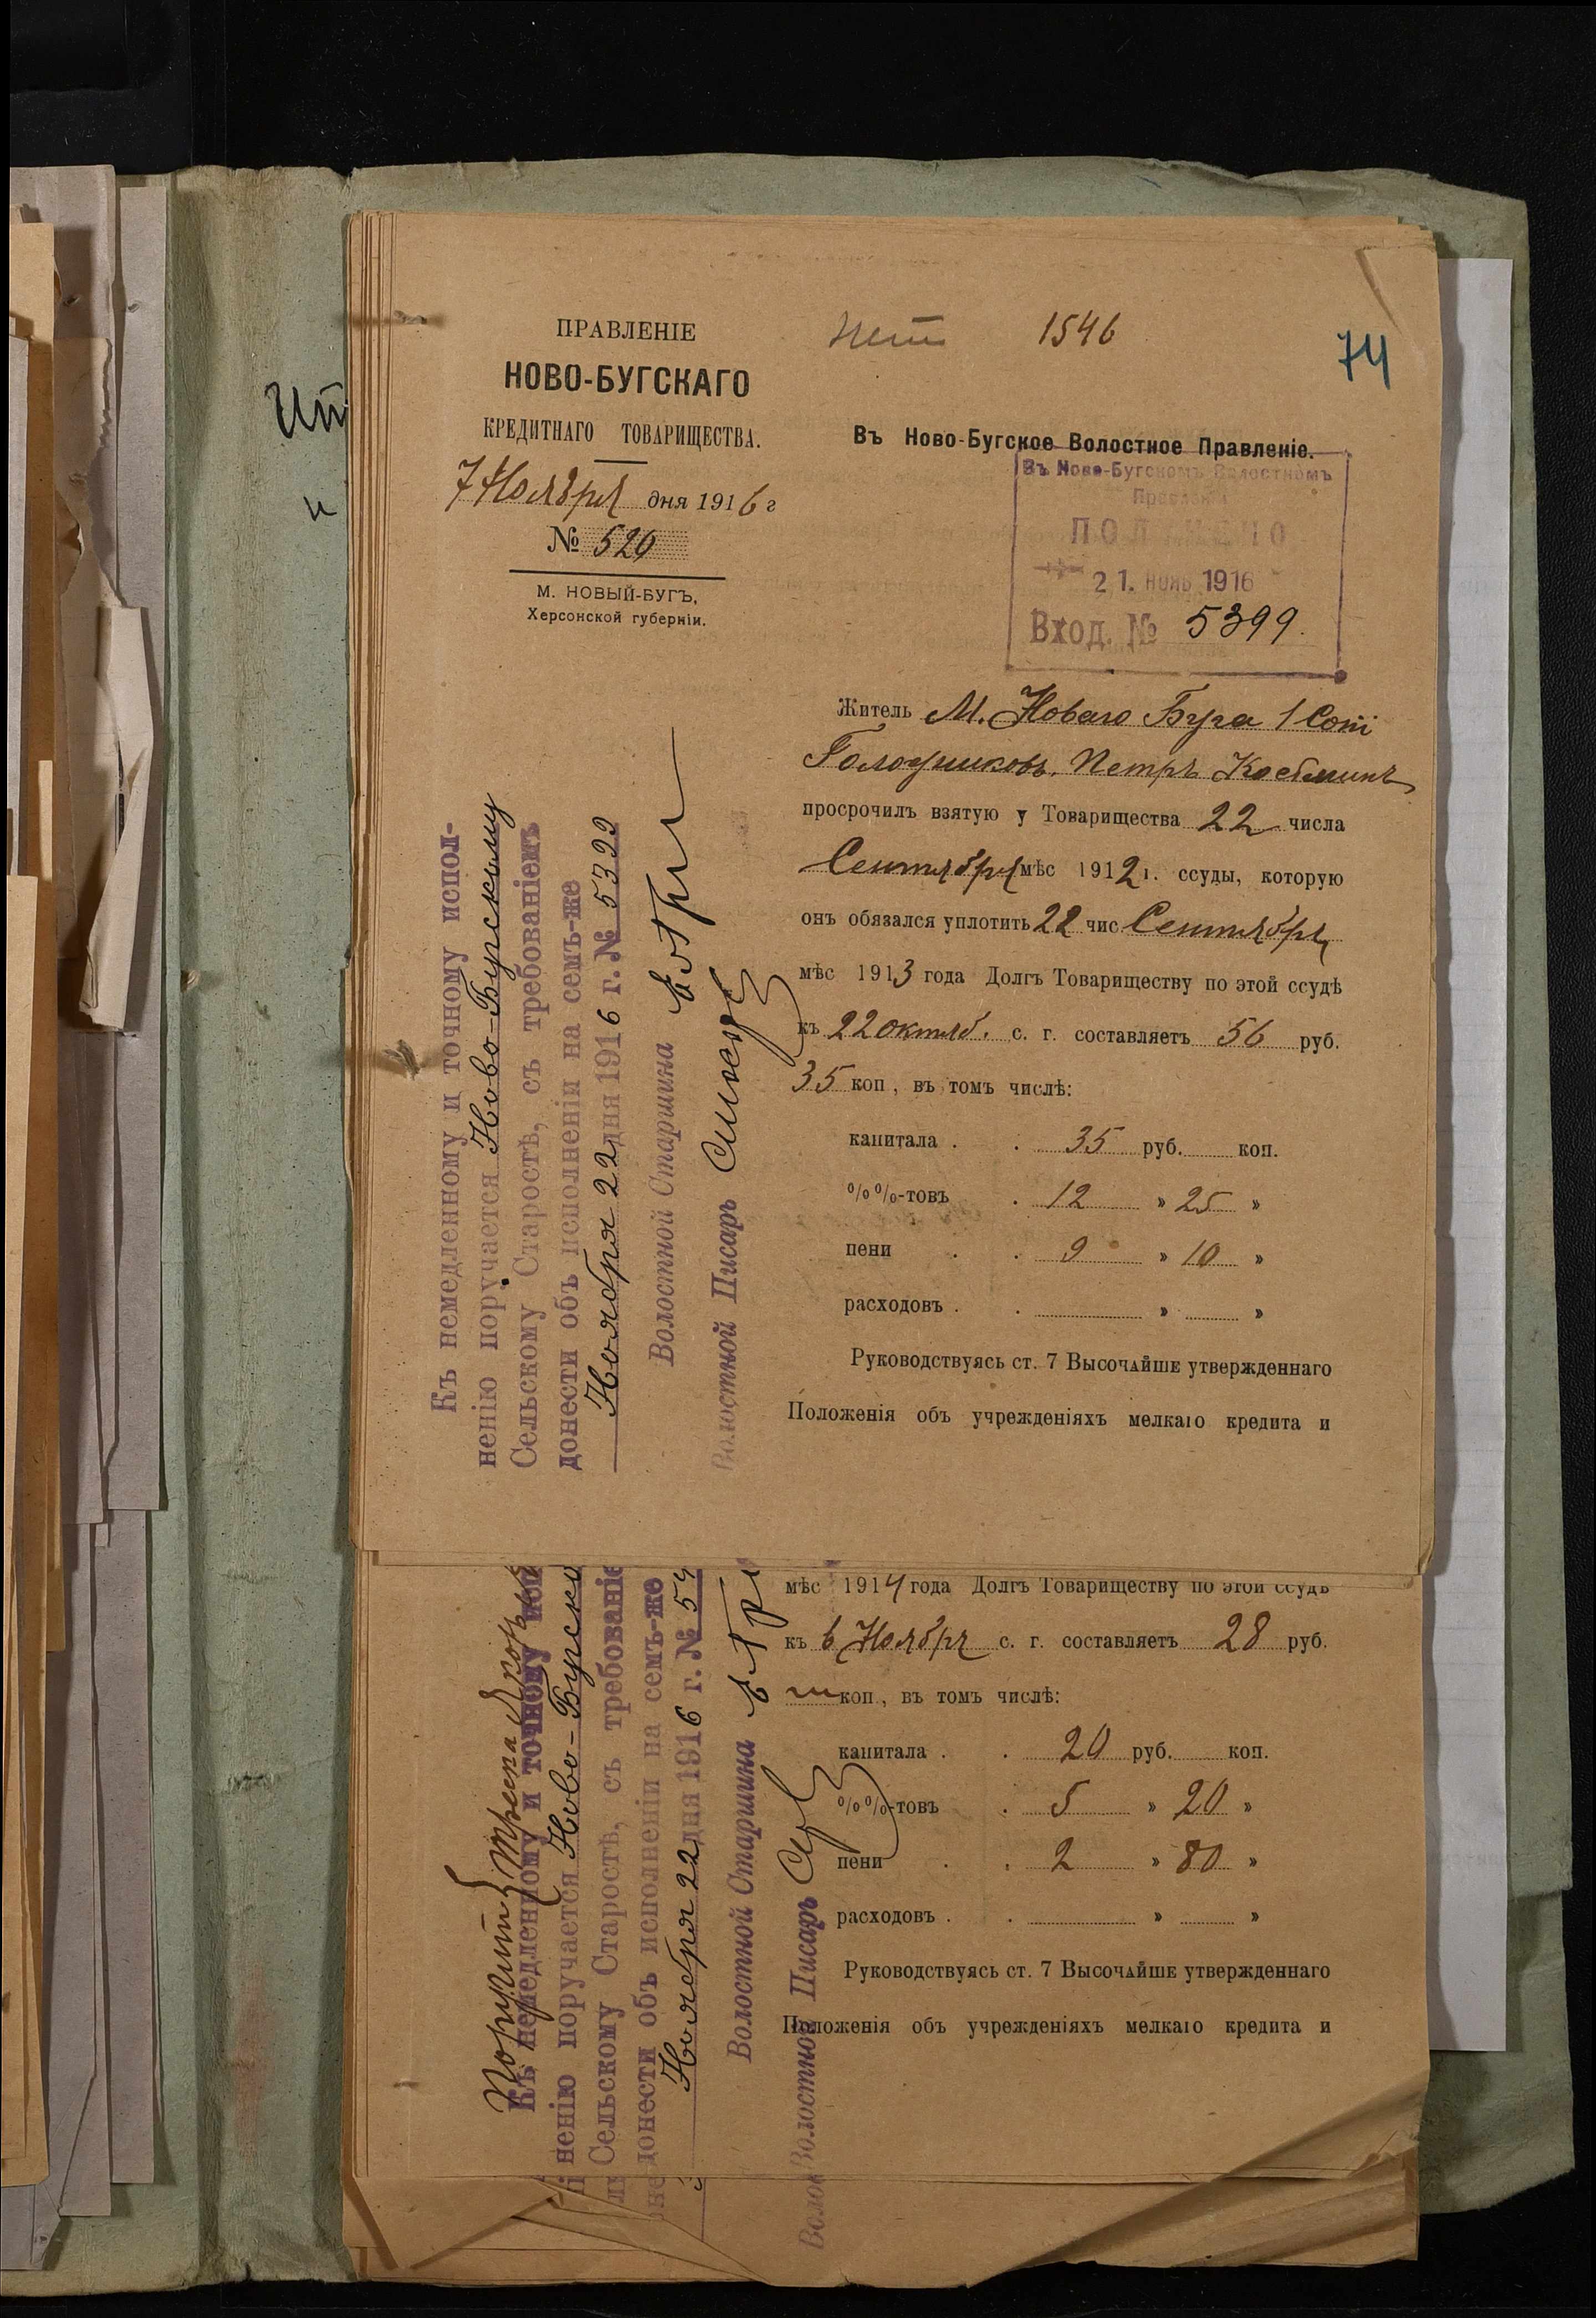 ПРАВЛЕНІЕ
НОВО-БУГСКАГО
КРЕДИТНАГО ТОВАРИЩЕСТВА.
7 Ноября дня 1916 г
№ 520
М. НОВЫЙ-БУГЪ,
Херсонской губерніи.
1546
74
Въ Ново-Бугское Волостное Правленіе.
Въ Ново-Бугскомъ Волостномъ
Правленіи
21. НОЯБ 1916
Вход. № 5399.
Житель М. Новаго Буга 1 Сот
Петръ
просрочилъ взятую у Товарищества 22 числа
Сентября мѣс 1912 г. ссуды, которую
онъ обязался уплотить 22 чис Сентября
мѣс 1913 года Долгъ Товариществу по этой ссудѣ
къ 22 октяб. с. г. составляетъ 56 руб.
35 коп, въ томъ числѣ:
капитала . . 35 руб. коп.
%%-товъ . 12 » 25 »
пени . . 9 » 10 »
расходовъ . . » »
Руководствуясь ст. 7 Высочайше утвержденнаго
Положенія объ учрежденіяхъ мелкаго кредита и
Къ немедленному и точному испол-
ненію поручается Ново-Бугскому
Сельскому Старостѣ, съ требованіемъ
донести объ исполненіи на семъ-же
Ноября 22 дня 1916 г. № 5399
Волостной Старшина
Волостной Писарь
мѣс 1914 года Долгъ Товариществу по этой ссудѣ
къ 6 Ноября с. г. составляетъ 28 руб.
коп, въ томъ числѣ:
капитала . . 20 руб. коп.
%%-товъ . 5 » 20 »
пени . . 2 » 80 »
расходовъ . . » »
Руководствуясь ст. 7 Высочайше утвержденнаго
Положенія объ учрежденіяхъ мелкаго кредита и
Къ немедленному и точному испол
ненію поручается Ново-Бугско
Сельскому Старостѣ, съ требованіе
донести объ исполненіи на семъ-же
Ноября 22 дня 1916 г. № 54
Волостной Старшина
Волостной Писарь